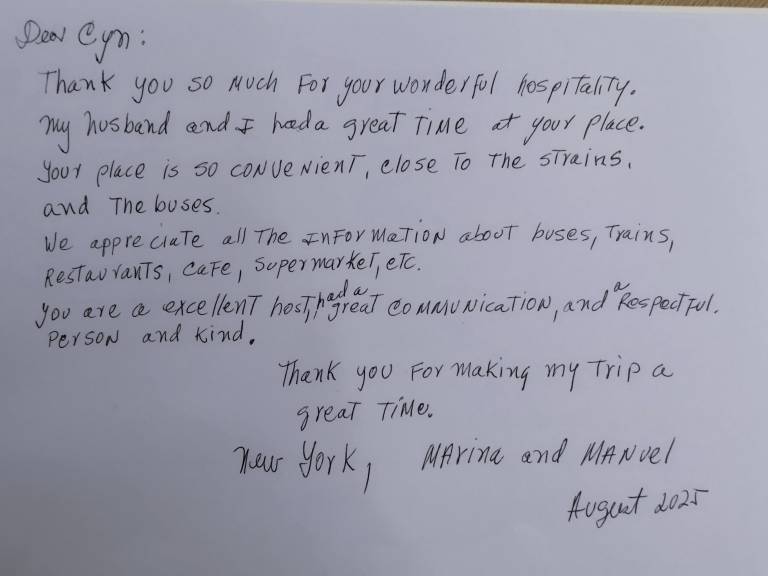 Dear Cyn:
Thank you so much for your wonderful hospitality.
My husband and I had a great time at your place.
Your place is so convenient, close to the strains,
and the buses.
We appreciate all the information about buses, trains,
restaurants, cafe, supermarket, etc.
You are a excellent host, had a great communication, and a respectful.
person and kind.
Thank you for making my trip a
great time.
New York, Marina and Manuel
August 2025